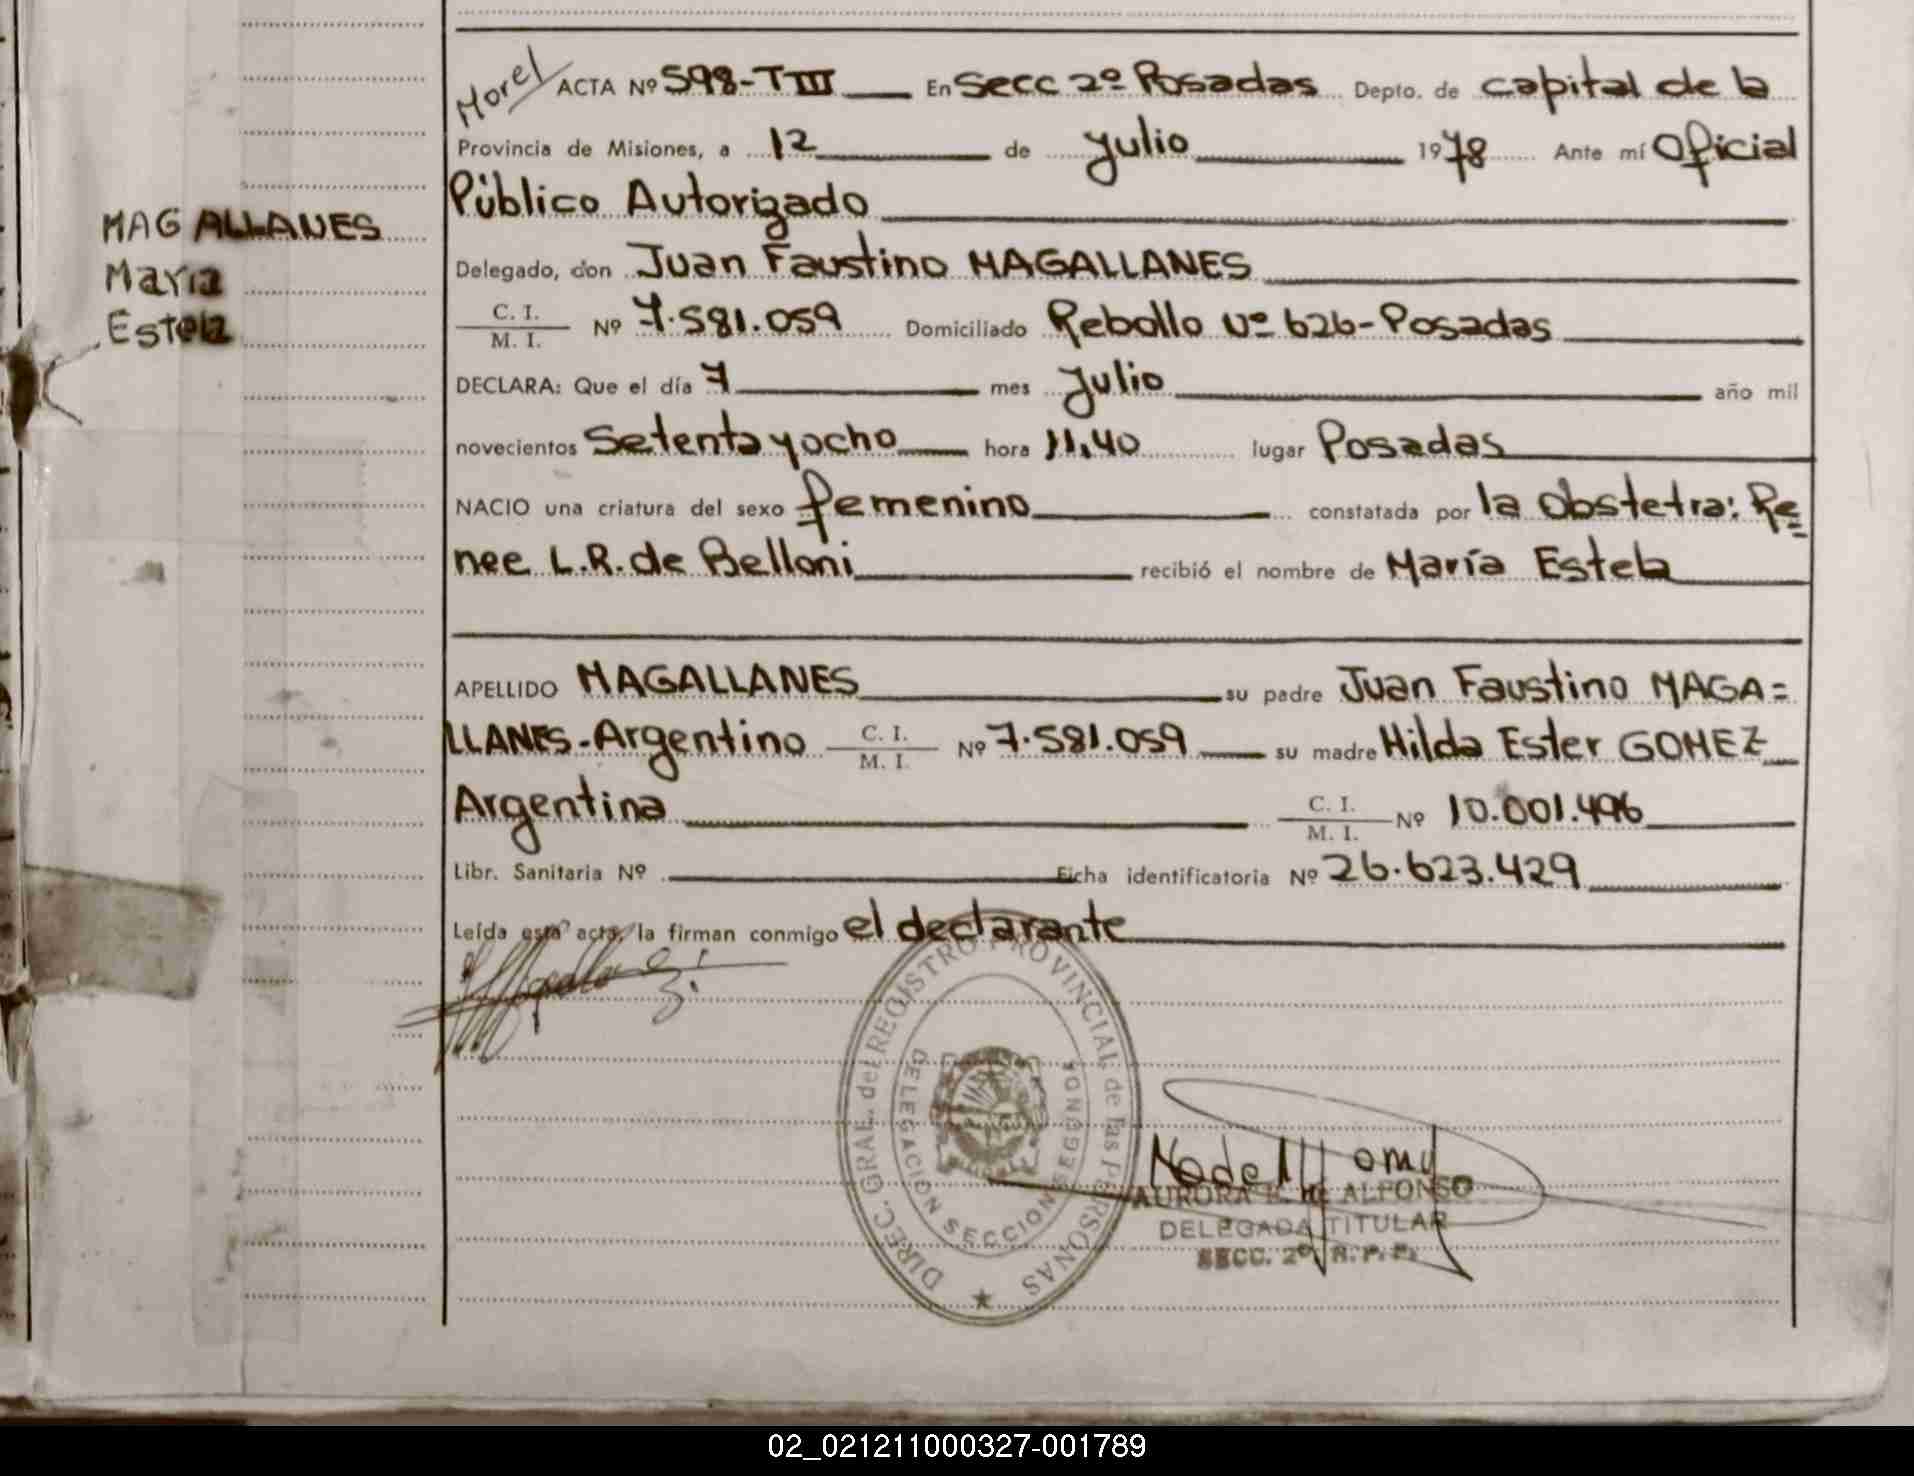 Morel ACTA Nº 598-T III En Secc 2º Posadas Depto. de capital de la
Provincia de Misiones, a 12 de Julio 1978 Ante mí Oficial
Público Autorizado
MAGALLANES
María
Estela
Delegado, don Juan Faustino MAGALLANES
C. I.
M. I. Nº 7.581.059 Domiciliado Rebollo Nº 626-Posadas
DECLARA: Que el día 7 mes Julio año mil
novecientos Setenta y ocho hora 11,40 lugar Posadas
NACIO una criatura del sexo femenino constatada por la Obstetra: Re=
nee L.R. de Belloni recibió el nombre de María Estela
APELLIDO MAGALLANES su padre Juan Faustino MAGA=
LLANES-Argentino C. I. M. I. Nº 7.581.059 su madre Hilda Ester GOMEZ
Argentina C. I. M. I. Nº 10.001.496
Libr. Sanitaria Nº Ficha identificatoria Nº 26.623.429
Leída esta acta, la firman conmigo el declarante
DIREC. GRAL. del REGISTRO PROVINCIAL de las PERSONAS
DELEGACION SECCION SEGUNDA
AURORA E. de ALFONSO
DELEGADA TITULAR
SECC. 2º R. P. P.
02_021211000327-001789